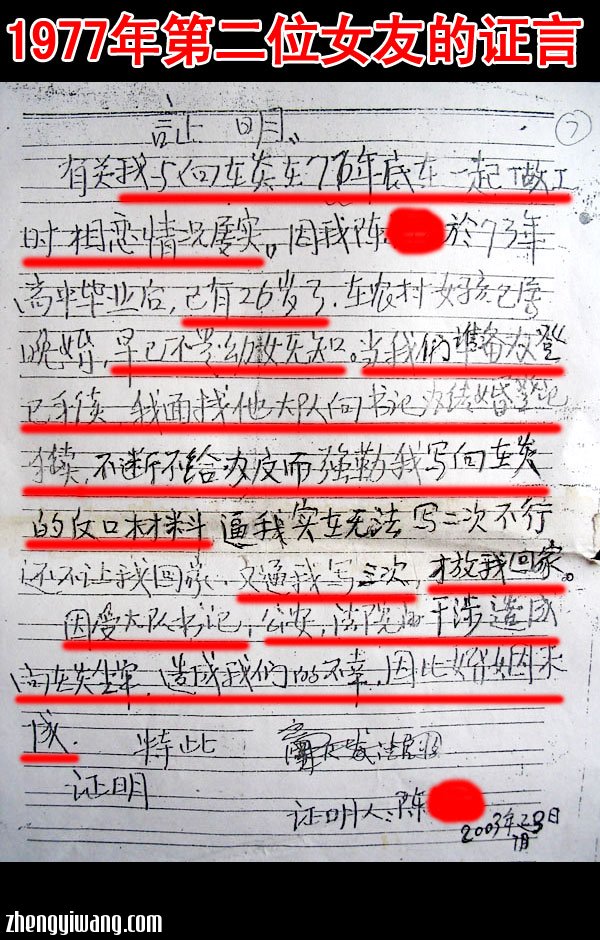 1977年第二位女友的证言
证明
7
有关我与向在炎在76年底在一起做工
时相恋情况属实。因我陈 於73年
高中毕业后,已有26岁了.在农村女孩已属
晚婚,早已不是幼女无知。当我们准备办登
记手续 我面找他大队向书记办结婚登记
手续,不断不给办反而强勒我写向在炎
的反口材料 逼我实在无法 写二次不行
还不让我回家,又逼我写三次,才放我回家。
因受大队书记,公安,法院 干涉造成
向在炎坐牢,造成我们的不幸,因此婚姻未
成.
特此
证明
证明人:陈
2003年 28日
7月
zhengyiwang.com